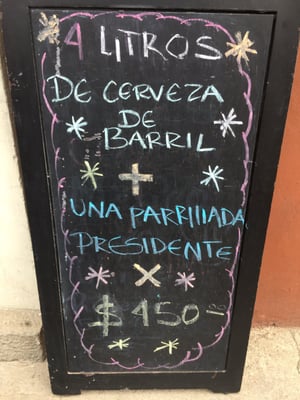 4 LITROS
DE CERVEZA
DE
BARRIL
+
UNA PARRIllADA
PRESIDENTE
X
$450.00